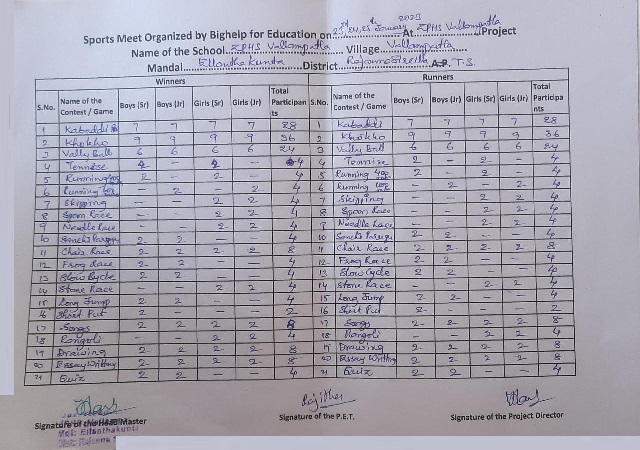 Sports Meet Organized by Bighelp for Education on 23rd, 24, 25th January 2023 At ZPHS Vallampatla Project
Name of the School ZPHS Vallampatla Village Vallampatla
Mandal Ellanthakunta District Rajanna Sircilla A.P., T.S.
Winners Runners
S.No. Name of the Contest / Game Boys (Sr) Boys (Jr) Girls (Sr) Girls (Jr) Total Participants S.No. Name of the Contest / Game Boys (Sr) Boys (Jr) Girls (Sr) Girls (Jr) Total Participants
1 Kabaddi 7 7 7 7 28 1 Kabaddi 7 7 7 7 28
2 Khokho 9 9 9 9 36 2 Khokho 9 9 9 9 36
3 Vally Ball 6 6 6 6 24 3 Vally Ball 6 6 6 6 24
4 Tennise 2 - 2 - 4 4 Tennise 2 - 2 - 4
5 Running 2 - 2 - 4 5 Running 2 - 2 - 4
6 Running - 2 - 2 4 6 Running - 2 - 2 4
7 Skipping - - 2 2 4 7 Skipping - - 2 2 4
8 Spoon Race - - 2 2 4 8 Spoon Race - - 2 2 4
9 Needle Race - - 2 2 4 9 Needle Race - - 2 2 4
10 2 2 - - 4 10 2 2 - - 4
11 Chair Race 2 2 2 2 8 11 Chair Race 2 2 2 2 8
12 Frog Race 2 2 - - 4 12 Frog Race 2 2 - - 4
13 Slow Cycle 2 2 - - 4 13 Slow Cycle 2 2 - - 4
14 Stone Race - - 2 2 4 14 Stone Race - - 2 2 4
15 Long Jump 2 2 - - 4 15 Long Jump 2 2 - - 4
16 Shot Put 2 - - - 2 16 Shot Put 2 - - - 2
17 Songs 2 2 2 2 8 17 Songs 2 2 2 2 8
18 Rangoli - - 2 2 4 18 Rangoli - - 2 2 4
19 Drawing 2 2 2 2 8 19 Drawing 2 2 2 2 8
20 Essay Writting 2 2 2 2 8 20 Essay Writting 2 2 2 2 8
21 Quiz 2 2 - - 4 21 Quiz 2 2 - - 4
Signature of the Head Master Signature of the P.E.T. Signature of the Project Director
Mdl: Ellanthakunta